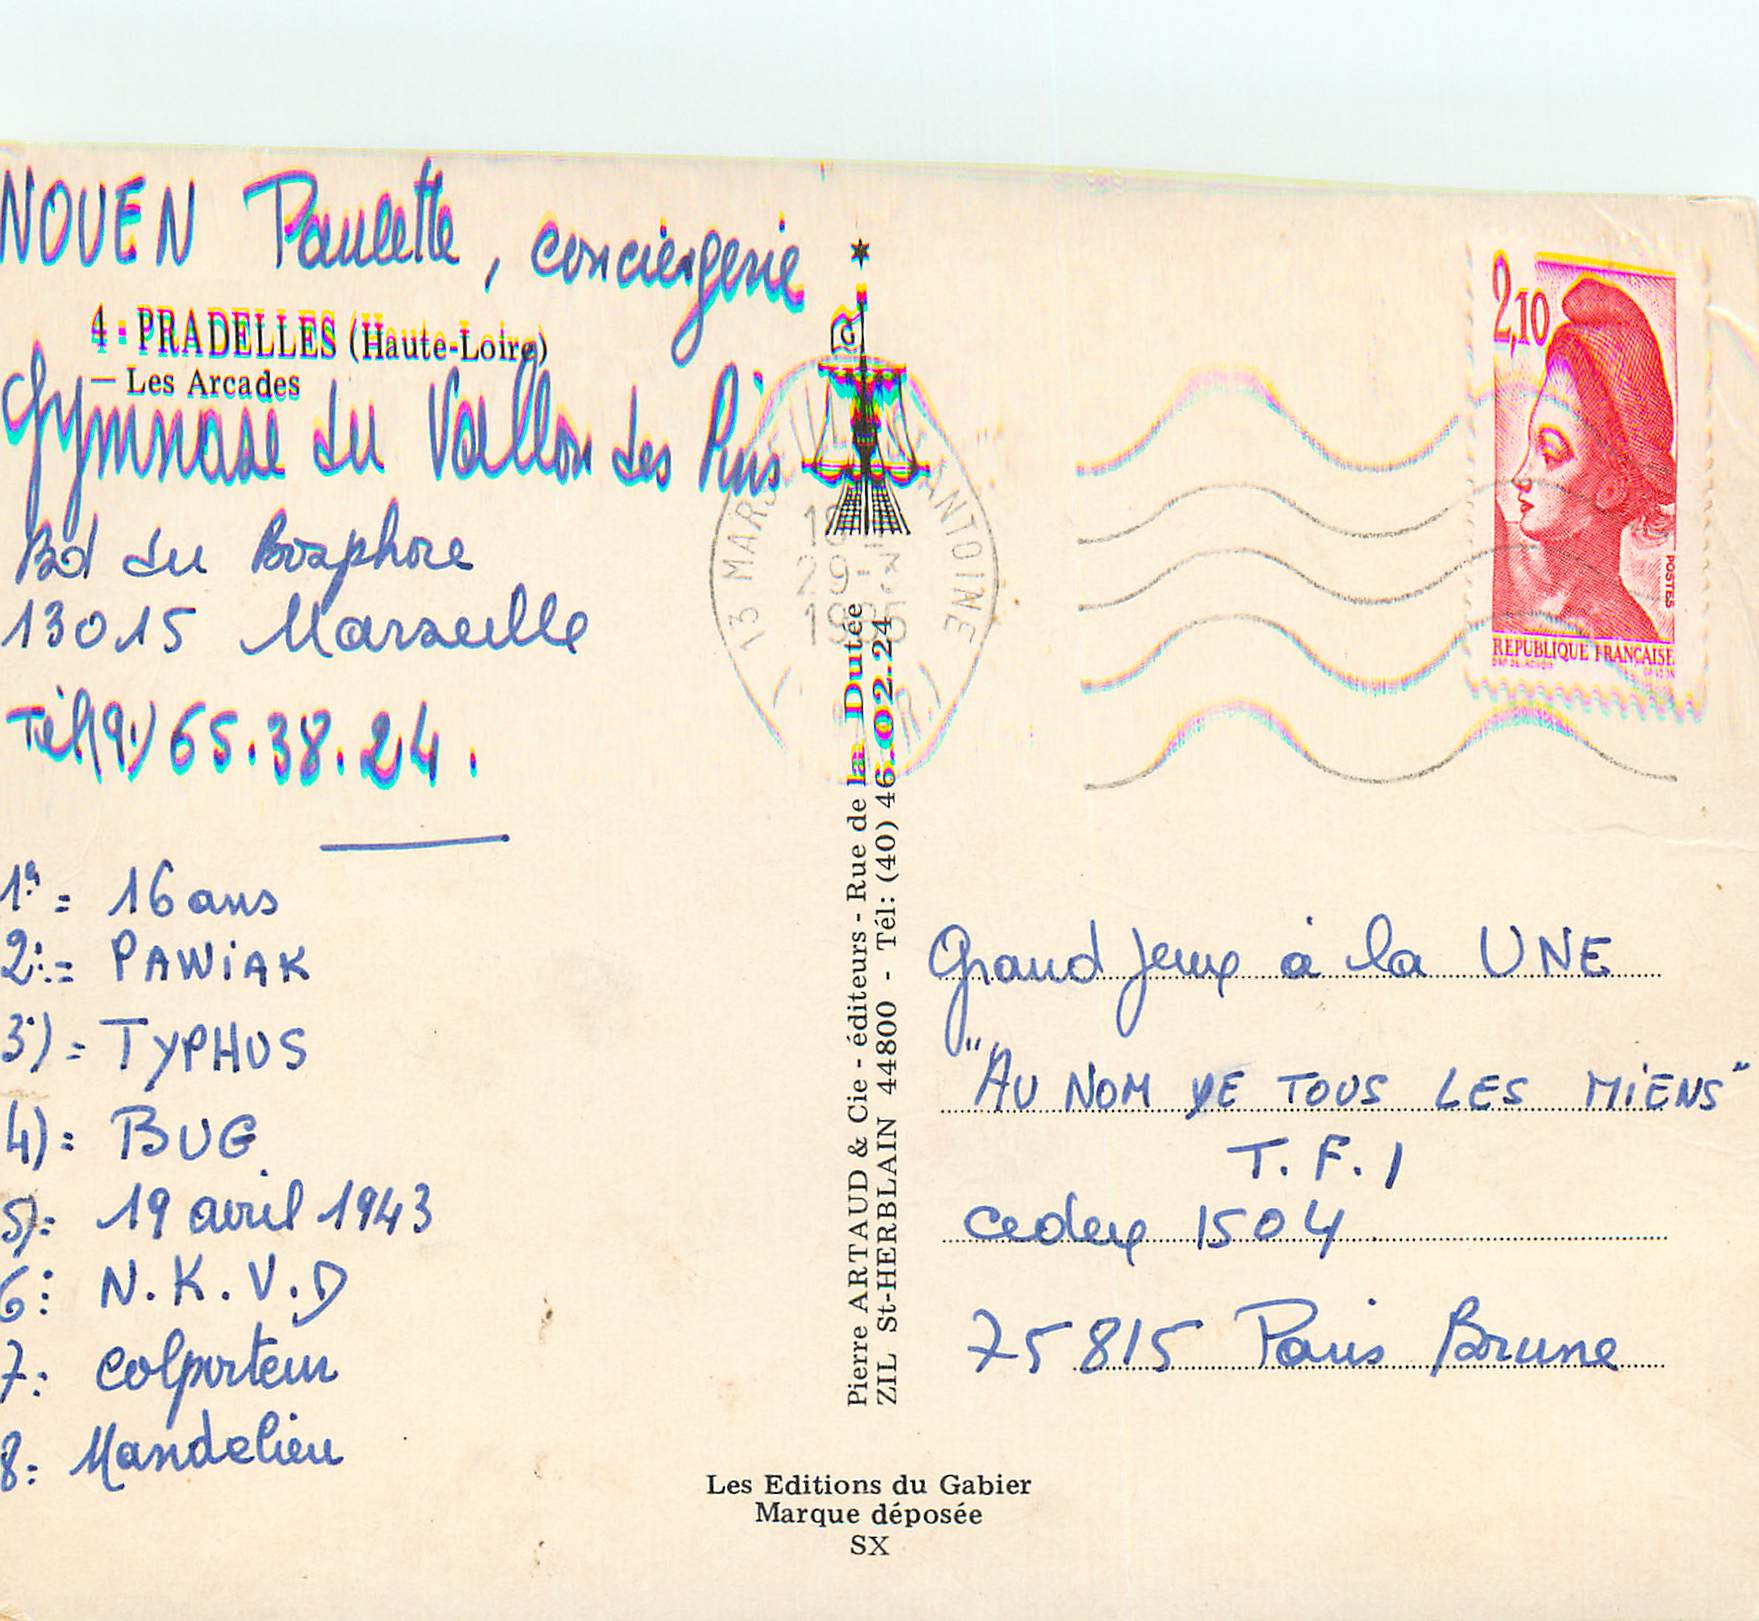 NOUEN Paulette, conciergerie
4 - PRADELLES (Haute-Loire)
— Les Arcades
Gymnase du Vallon des Pins
Bd du Bosphore
13015 Marseille
Tél(91) 65.38.24.
1°= 16 ans
2:= PAWiAK
3)= TYPHUS
4): BUG
5): 19 avril 1943
6: N.K.V.D
7: Colporteur
8: Mandelieu
G
13 MARSEILLE ANTOINE
29-3
1985
Pierre ARTAUD & Cie - éditeurs - Rue de la Dutée
ZIL St-HERBLAIN 44800 - Tél: (40) 46.02.24
Les Editions du Gabier
Marque déposée
SX
2,10
POSTES
REPUBLIQUE FRANCAISE
Grand Jeux à la UNE
"AU NOM DE TOUS LES MiENS"
T.F.1
Cedex 1504
75815 Paris Brune